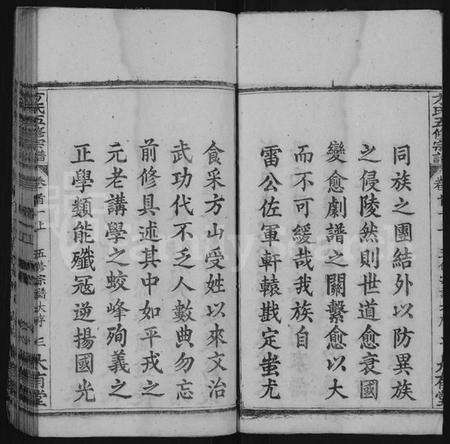 同族之團結外以防異族
之侵陵然則世道愈衰國
變愈劇譜之關繫愈以大
而不可緩哉我族自
雷公佐軍軒轅戡定蚩尤
食采方山受姓以來文治
武功代不乏人數典勿忘
前修具述其中如平戎之
元老講學之蛟峰殉義之
正學類能殲寇逆揚國光
方氏五修宗譜
卷首一上
五修宗譜大序
三
大有堂